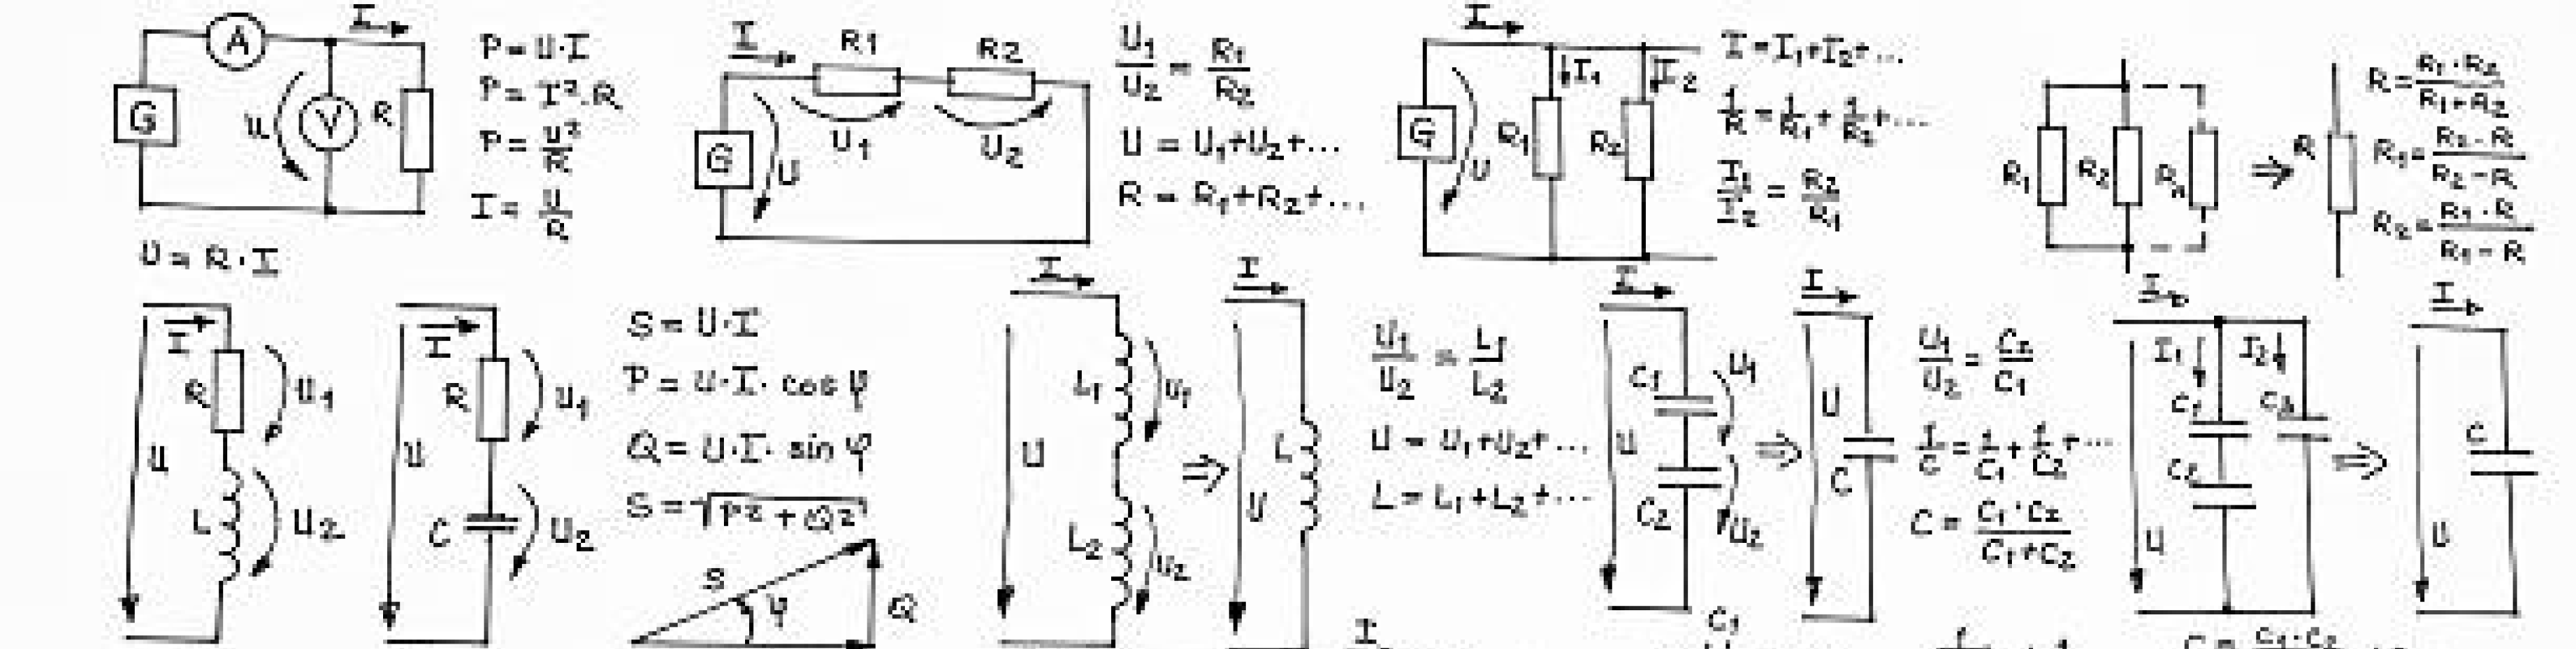 I
A
G
U
V
R
P = U·I
P = I²·R
P = U²/R
I = U/R
U = R·I
I
R1
R2
G
U
U1
U2
U1/U2 = R1/R2
U = U1+U2+...
R = R1+R2+...
I
G
U
I1
I2
R1
R2
I = I1+I2+...
1/R = 1/R1 + 1/R2 +...
I1/I2 = R2/R1
R1
R2
⇒
R
R = R1·R2/R1+R2
R1 = R2·R/R2−R
R2 = R1·R/R1−R
I
U
R
U1
L
U2
I
U
R
U1
C
U2
S = U·I
P = U·I· cos φ
Q = U·I· sin φ
S = √P²+Q²
S
φ
Q
I
U
L1
U1
L2
U2
⇒
I
U
L
U1/U2 = L1/L2
U = U1+U2+...
L = L1+L2+...
I
U
C1
U1
C2
U2
⇒
I
U
C
U1/U2 = C2/C1
1/C = 1/C1 + 1/C2 +...
C = C1·C2/C1+C2
I
U
I1
I2
C1
C2
C3
⇒
I
U
C
I
C1